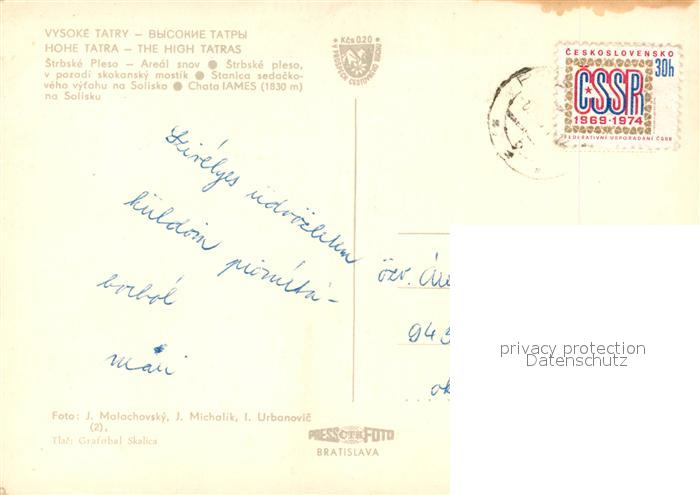 VYSOKÉ TATRY – ВЫСОКИЕ ТАТРЫ
HOHE TATRA – THE HIGH TATRAS
Štrbské Pleso – Areál snov ● Štrbské pleso,
v pozadí skokanský mostík ● Stanica sedačko-
vého výťahu na Solisko ● Chata IAMES (1830 m)
na Solisku
Kčs 0.20
ČESKOSLOVENSKO
30h
ČSSR
1969-1974
FEDERATIVNÍ USPOŘÁDÁNÍ ČSSR
Szívélyes üdvözletem
küldöm pionírtá-
borból
Mári
özv.
945
ok
privacy protection
Datenschutz
Foto: J. Malachovský, J. Michalík, I. Urbanovič
(2),
Tlač: Grafobal Skalica
PRESSČTKFOTO
BRATISLAVA